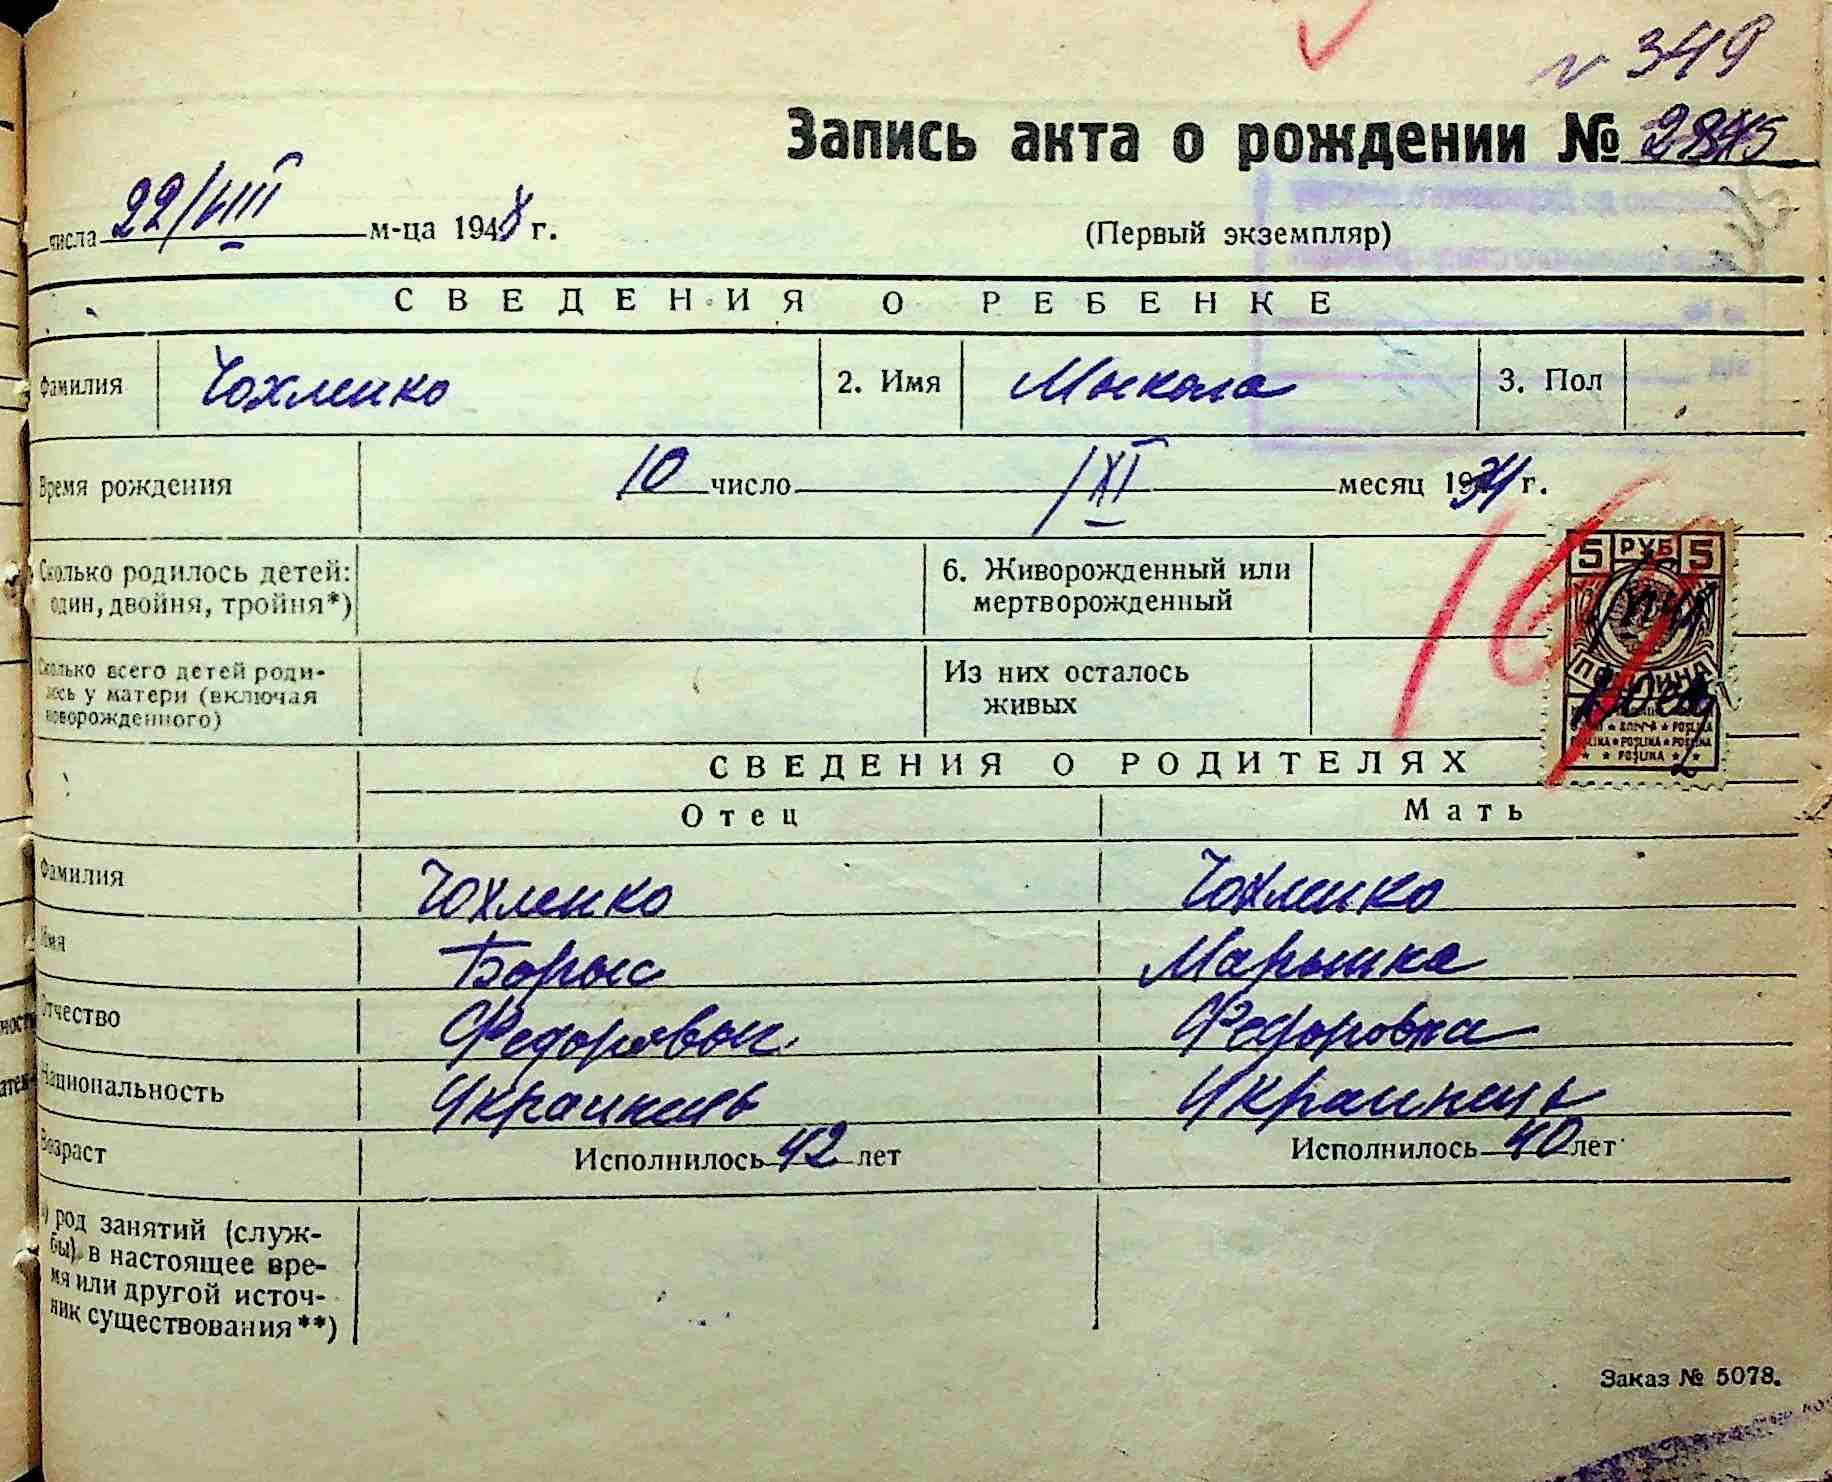 № 349
Запись акта о рождении №
числа 22/VIII м-ца 1948 г.
(Первый экземпляр)
СВЕДЕНИЯ О РЕБЕНКЕ
Фамилия Чохленко 2. Имя Мыкола 3. Пол
Время рождения 10 число /XI месяц 1934 г.
Сколько родилось детей: один, двойня, тройня*)
6. Живорожденный или мертворожденный
Сколько всего детей роди-
лось у матери (включая
новорожденного)
Из них осталось
живых
5 РУБ 5
ПОШЛИНА
СВЕДЕНИЯ О РОДИТЕЛЯХ
Отец Мать
Фамилия Чохленко Чохленко
Имя Борыс Марышка
Отчество Федоровыч Федоровна
Национальность Украинець Украинець
Возраст Исполнилось 42 лет Исполнилось 40 лет
род занятий (служ-
бы) в настоящее вре-
мя или другой источ-
ник существования**)
Заказ № 5078.